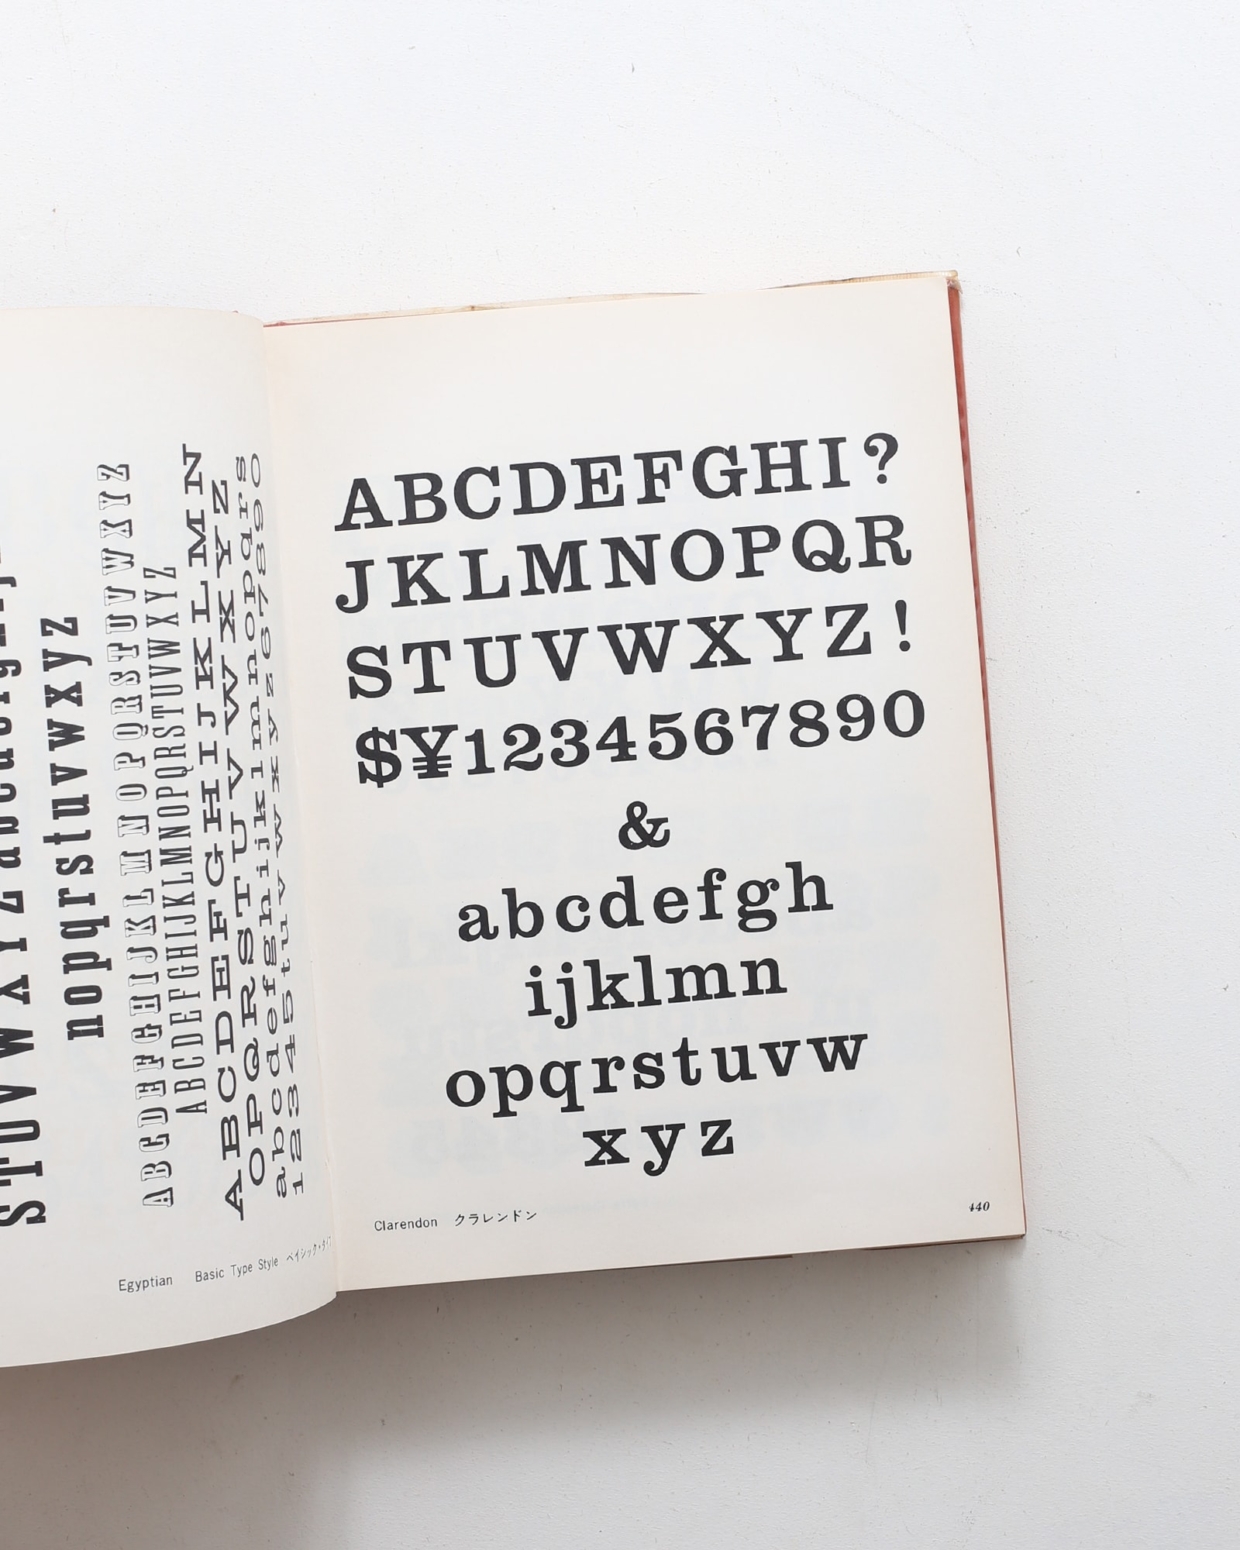 STUVWXYZabcdefghij
nopqrstuvwxyz
ABCDEFGHIJKLMNOPQRSTUVWXYZ
ABCDEFGHIJKLMNOPQRSTUVWXYZ
ABCDEFGHIJKLMN
OPQRSTUVWXYZ
abcdefghijklmnopqrs
12345tuvwxyz67890
Egyptian Basic Type Style
ABCDEFGHI?
JKLMNOPQR
STUVWXYZ!
$¥1234567890
&
abcdefgh
ijklmn
opqrstuvw
xyz
Clarendon クラレンドン
440